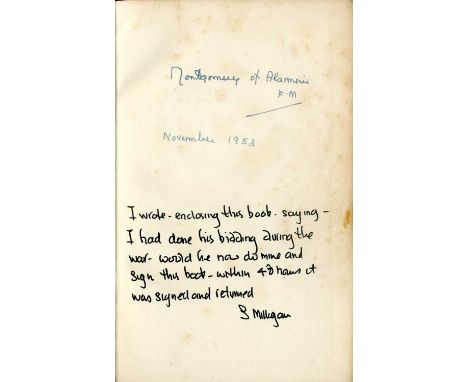 Montgomery of Alamein
F.M
November 1958
I wrote - enclosing this book - saying -
I had done his bidding during the
war - would he now do mine and
sign this book - within 48 hours it
was signed and returned
S Milligan